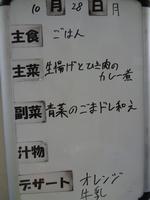 10月28日月
主食 ごはん
主菜 生揚げとひき肉の
カレー煮
副菜 青菜のごまドレ和え
汁物
デザート オレンジ
牛乳